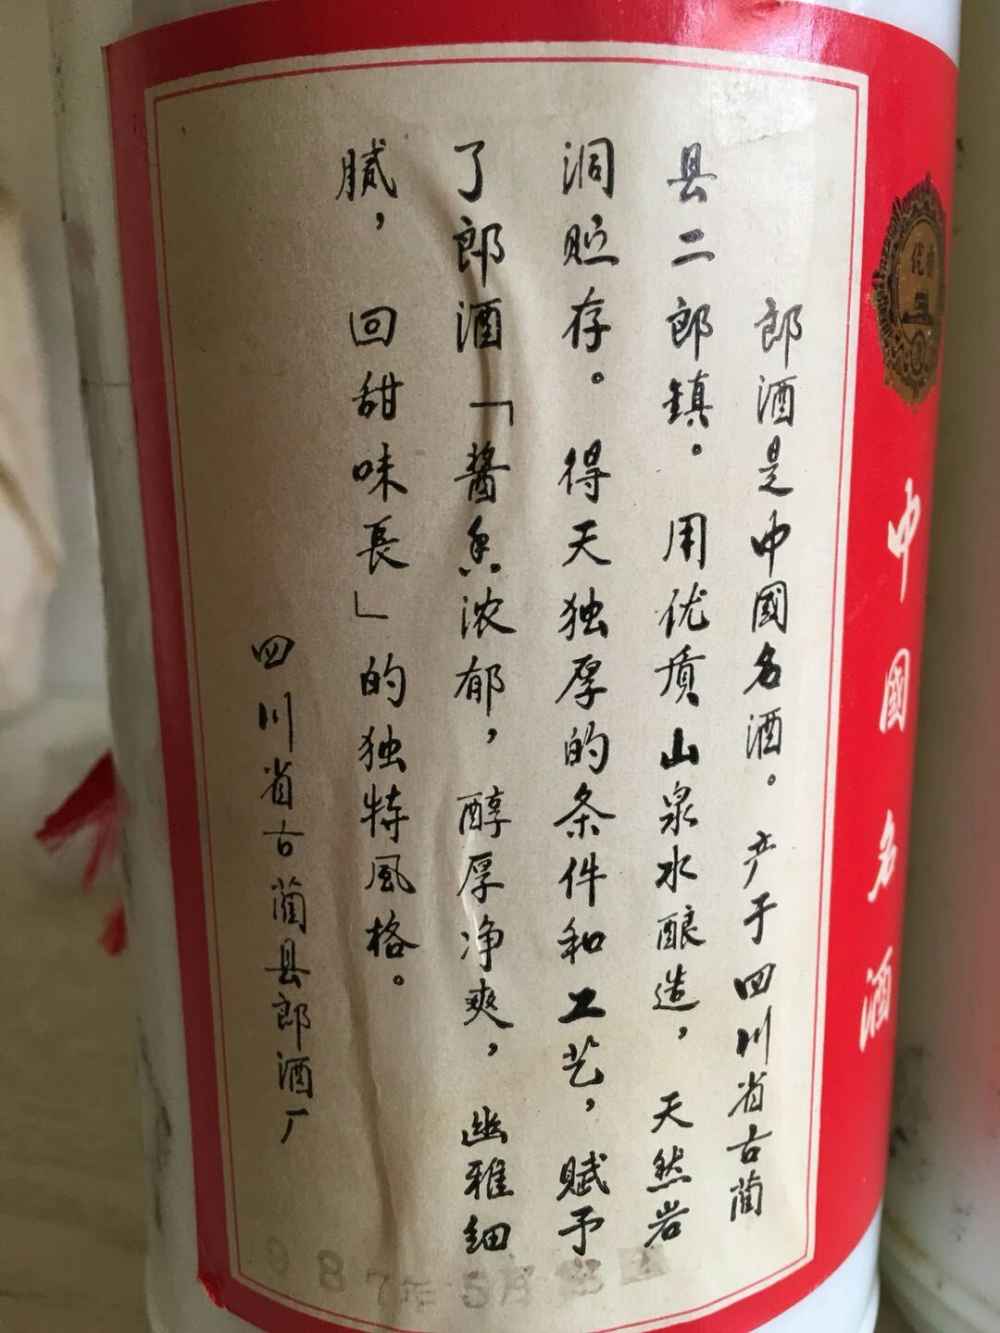 郎酒是中國名酒。产于四川省古蔺
县二郎镇。用优质山泉水酿造，天然岩
洞贮存。得天独厚的条件和工艺，赋予
了郎酒「酱香浓郁，醇厚净爽，幽雅细
腻，回甜味長」的独特風格。
四川省古蔺县郎酒厂
中國名酒
987年5月